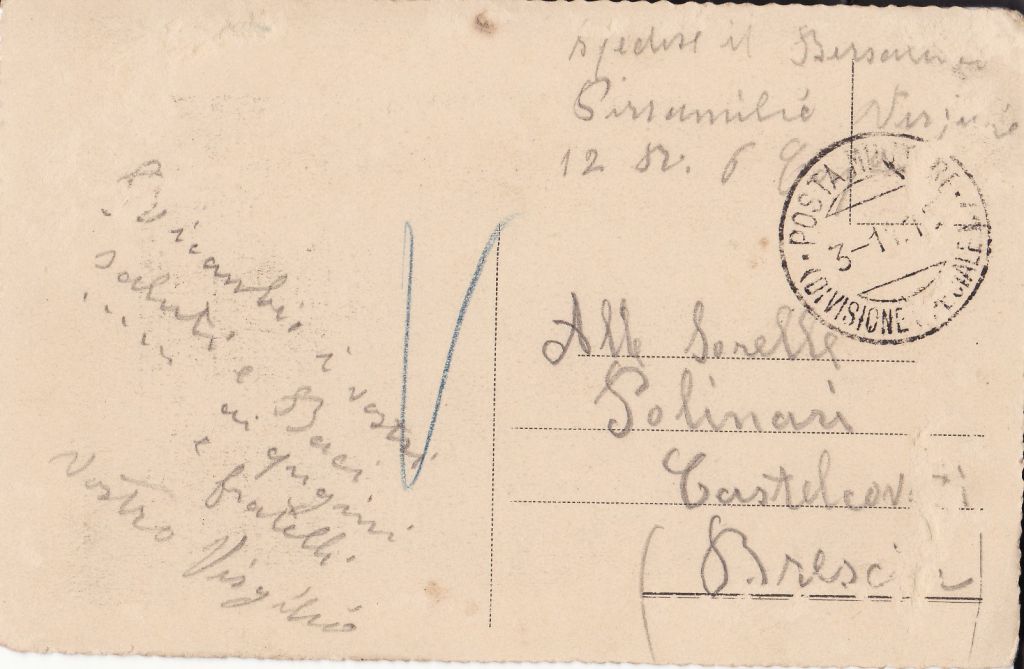 spedisce il
12 6
POSTA MILITARE
3-11.1
(DIVISIONE SPECIALE)
Vi ricambio i vostri
saluti e Baci
ai gugini
e fratelli
Vostro Virgilio
V
Alle Sorelle
Polinari
Castelcovati
(Brescia)